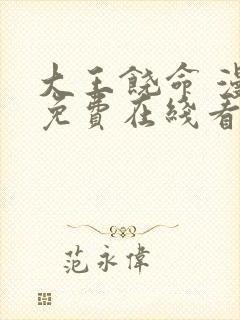 大王饶命 漫
免費在綫看
范永偉